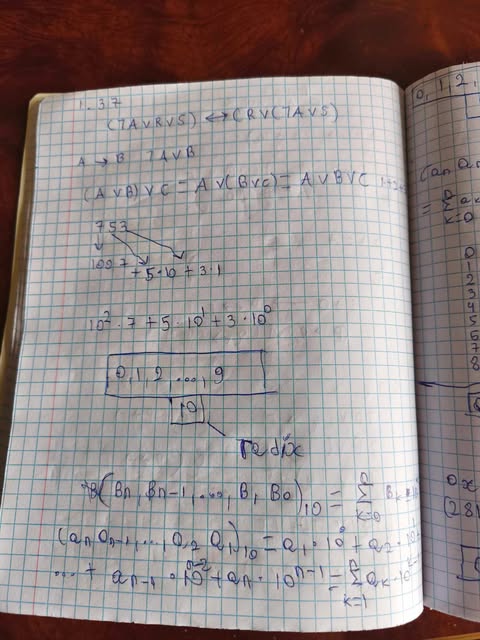 1.37
(⌐A∨R∨S) ↔ (R∨(⌐A∨S)
A → B ⌐A∨B
(A∨B)∨C = A∨(B∨C) = A∨B∨C
753
100·7 + 5·10 + 3·1
10²·7 + 5·10¹ + 3·10⁰
0,1,2 ...,9
10
radix
(Bn, Bn-1, ..., B, B0)10 = Σ k=0
(an an-1, ..., a2 a1)10 = a1·10⁰ + a2·10
... + an-1·10ⁿ⁻² + an·10ⁿ⁻¹ = Σ ak·10
k=1
0,1,2,
(an an
= Σ ak
k=0
0
1
2
3
4
5
6
7
8
0x
(281